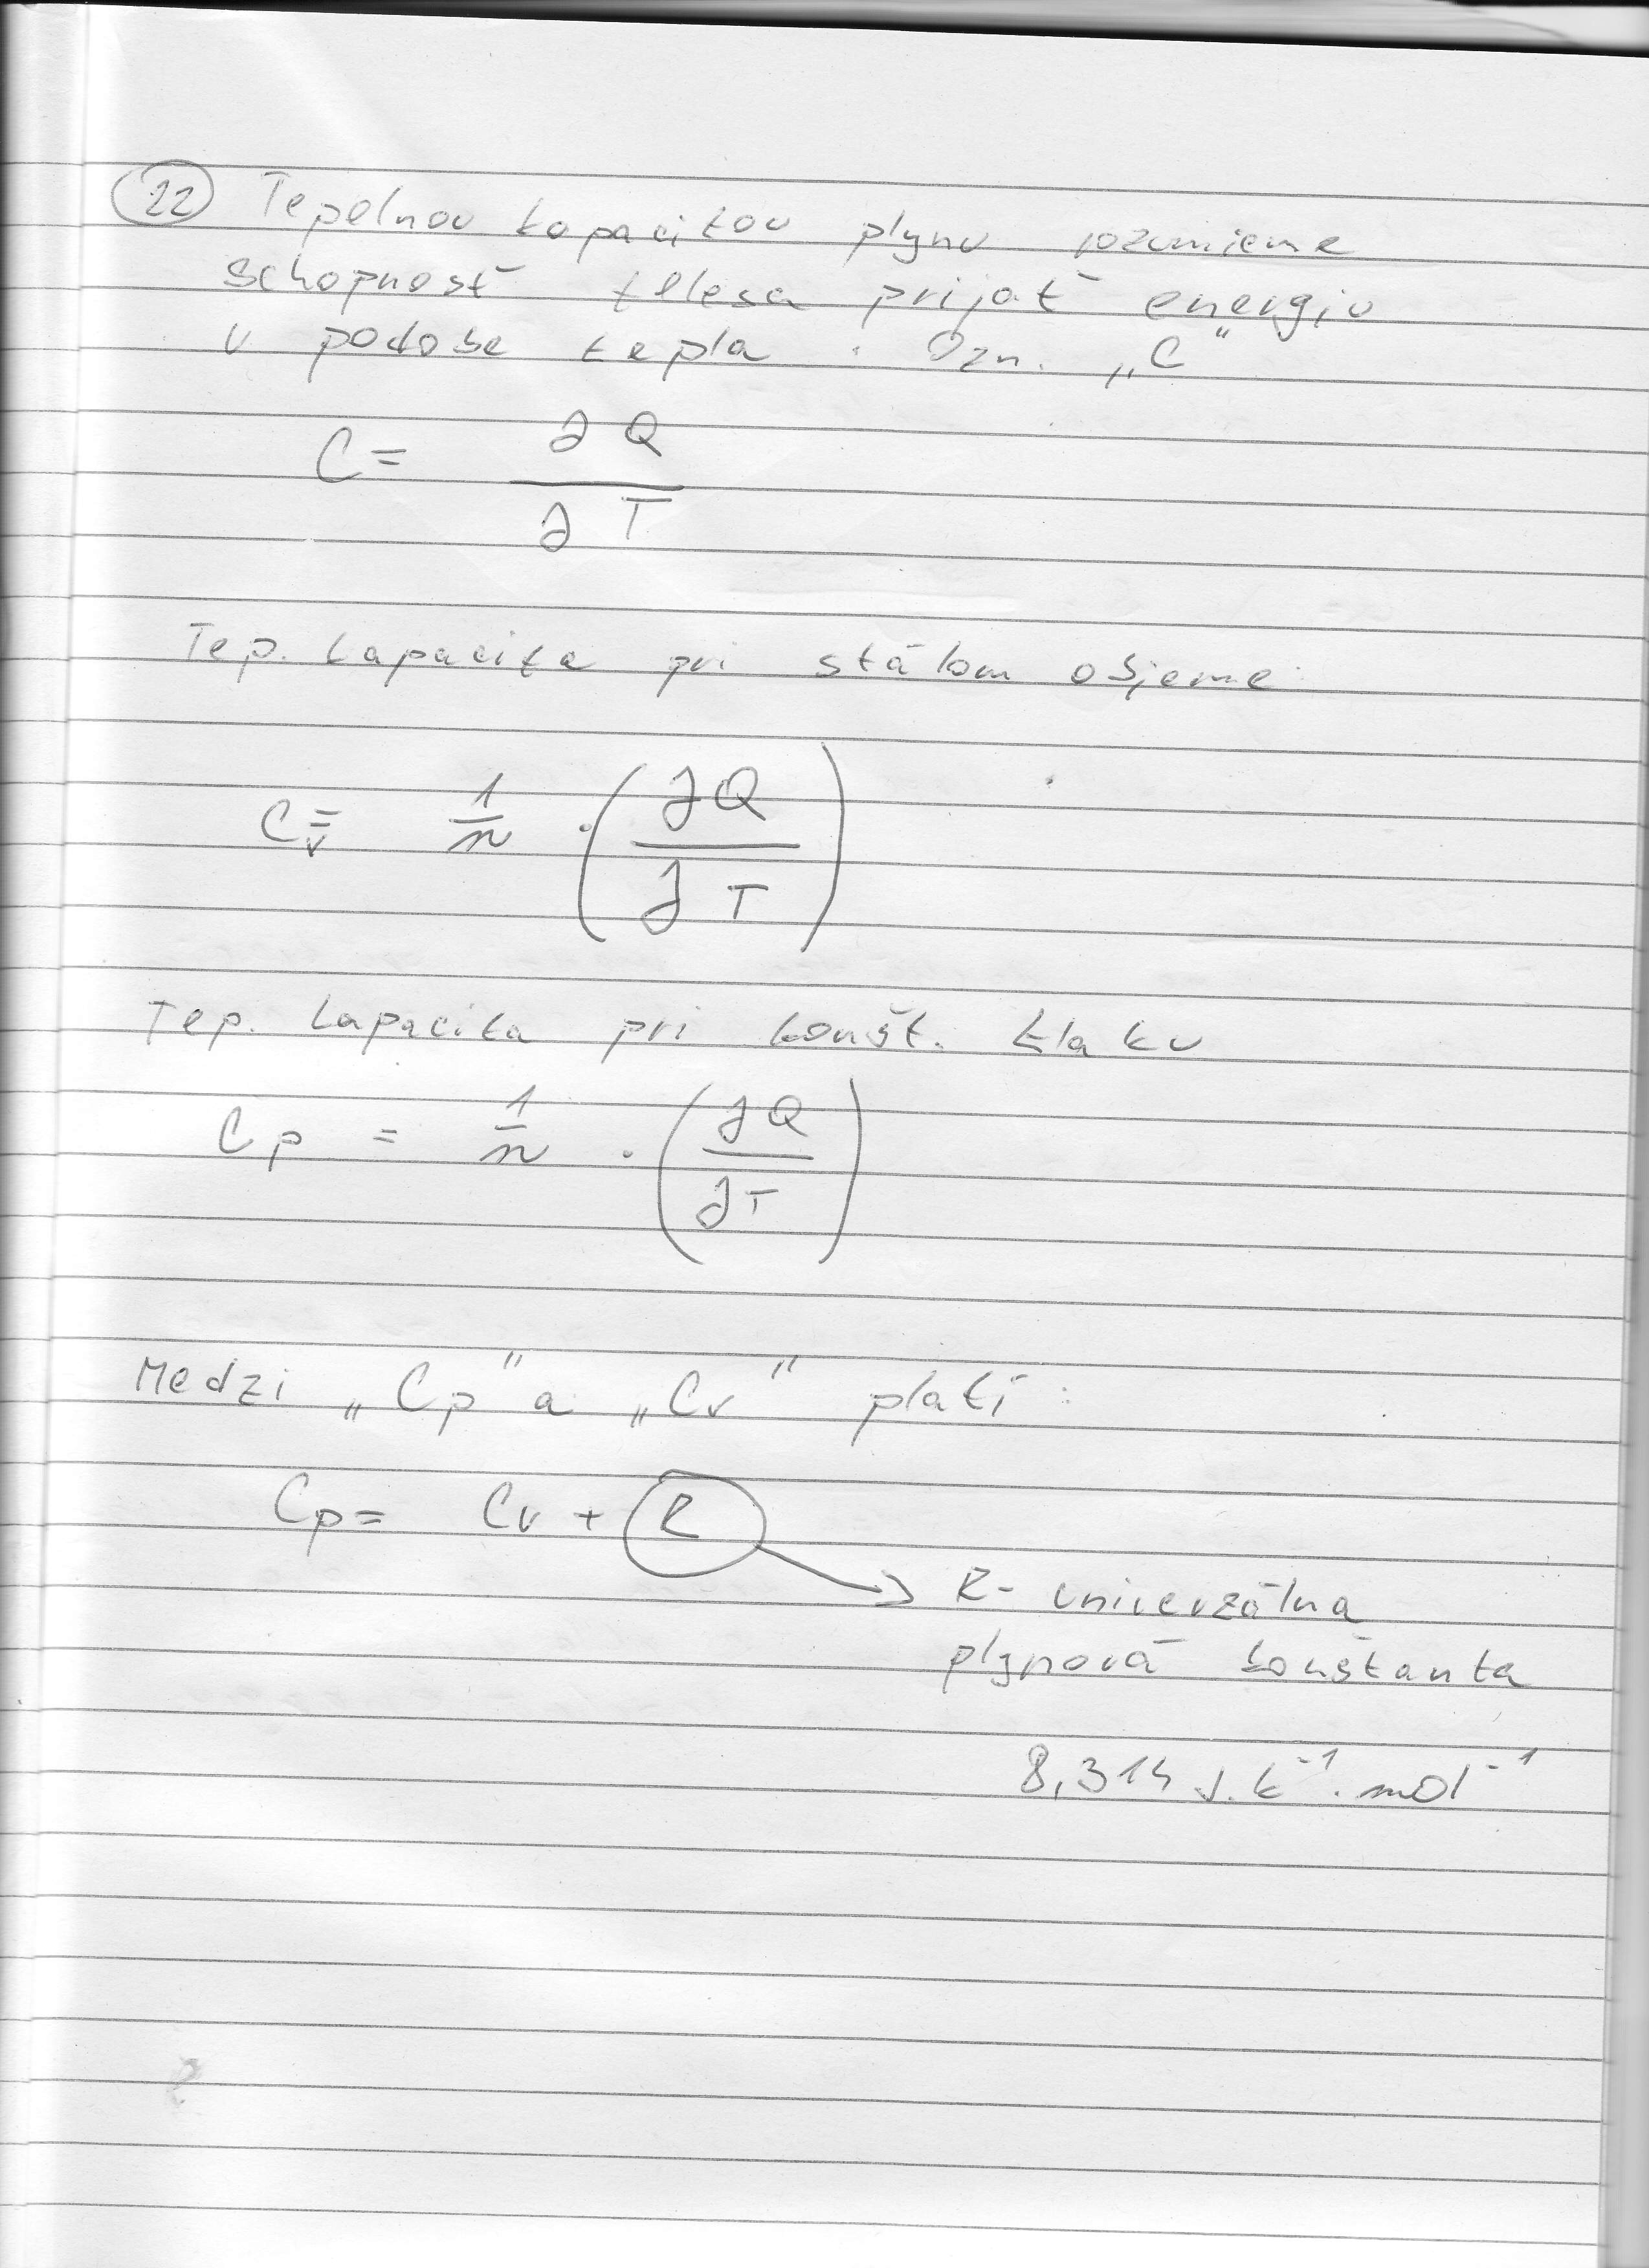 22 Tepelnou kapacitou plynu rozumieme
schopnosť telesa prijať energiu
v podobe tepla. Ozn. „C"
C = ∂Q / ∂T
Tep. kapacita pri stálom objeme
Cv = 1/n · (∂Q / ∂T)
Tep. kapacita pri konšt. tlaku
Cp = 1/n · (∂Q / ∂T)
Medzi „Cp" a „Cv" platí:
Cp = Cv + R
R - univerzálna
plynová konštanta
8,314 J.k⁻¹.mol⁻¹